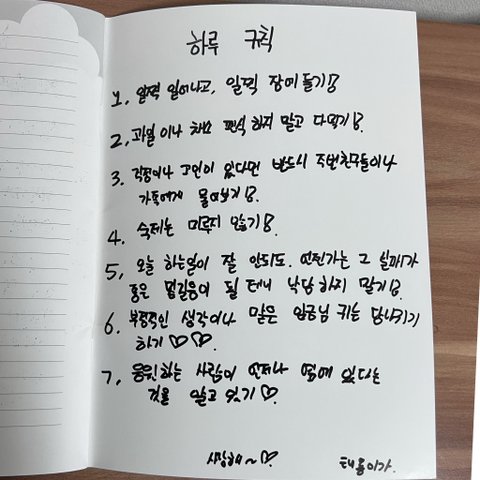 하루 규칙
1, 일찍 일어나고, 일찍 잠이 들기!
2, 과일이나 채소 편식 하지 말고 다먹기!
3. 걱정이나 고민이 있다면 반드시 주변친구들이나
가족에게 물어보기!
4. 숙제는 미루지 않기!
5, 오늘 하는일이 잘 안되도. 언젠가는 그 실패가
좋은 밑걸음이 될 테니 낙담 하지 말기!
6. 부정적인 생각이나 말은 임금님 귀는 당나귀기
하기♡♡.
7, 응원하는 사람이 언제나 옆에 있다는
것을 알고 있기♡.
사랑해~♡. 태용이가.